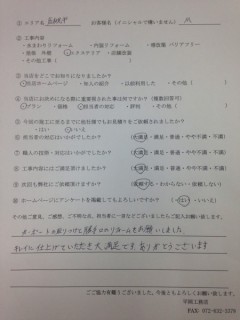 ① エリア名
お客様名(イニシャルで構いません) M
② 工事内容
・水まわりリフォーム ・内装リフォーム ・増改築 バリアフリー
・外装 外壁 ・エクステリア ・店舗改装
・その他工事(
③ 当店をどこでお知りになりましたか?
ホームページ ・知人の紹介 ・以前利用した ・その他(
④ 当店にお決めになる際に重要視された事は何ですか?(複数回答可)
プラン ・価格 ・担当者の対応 ・評判 ・その他(
⑤ 今回の施工に至るまでに他社様でもお見積りをご依頼されましたか?
・はい ・いいえ
⑥ 担当者の対応はいかがでしたか?(大満足・満足・普通・やや不満・不満)
⑦ 職人の技術・対応はいかがでしたか?(大満足・満足・普通・やや不満・不満)
⑧ 工事内容にはご満足頂けましたか?(大満足・満足・普通・やや不満・不満)
⑨ 次回も弊社にご依頼頂けますか?(依頼する・わからない・依頼しない)
⑩ ホームページにアンケートを掲載してもよろしいですか?(はい・いいえ)
その他ご意見、ご感想、ご不明な点、担当者に一言などございましたらご記入お願い致します。
カーポートの取りつけと勝手口のリフォームをお願いしました
キレイに仕上げていただき大満足です ありがとうございます
ご協力有難うございました。今後ともよろしくお願い致します。
FAX 072-632-3379